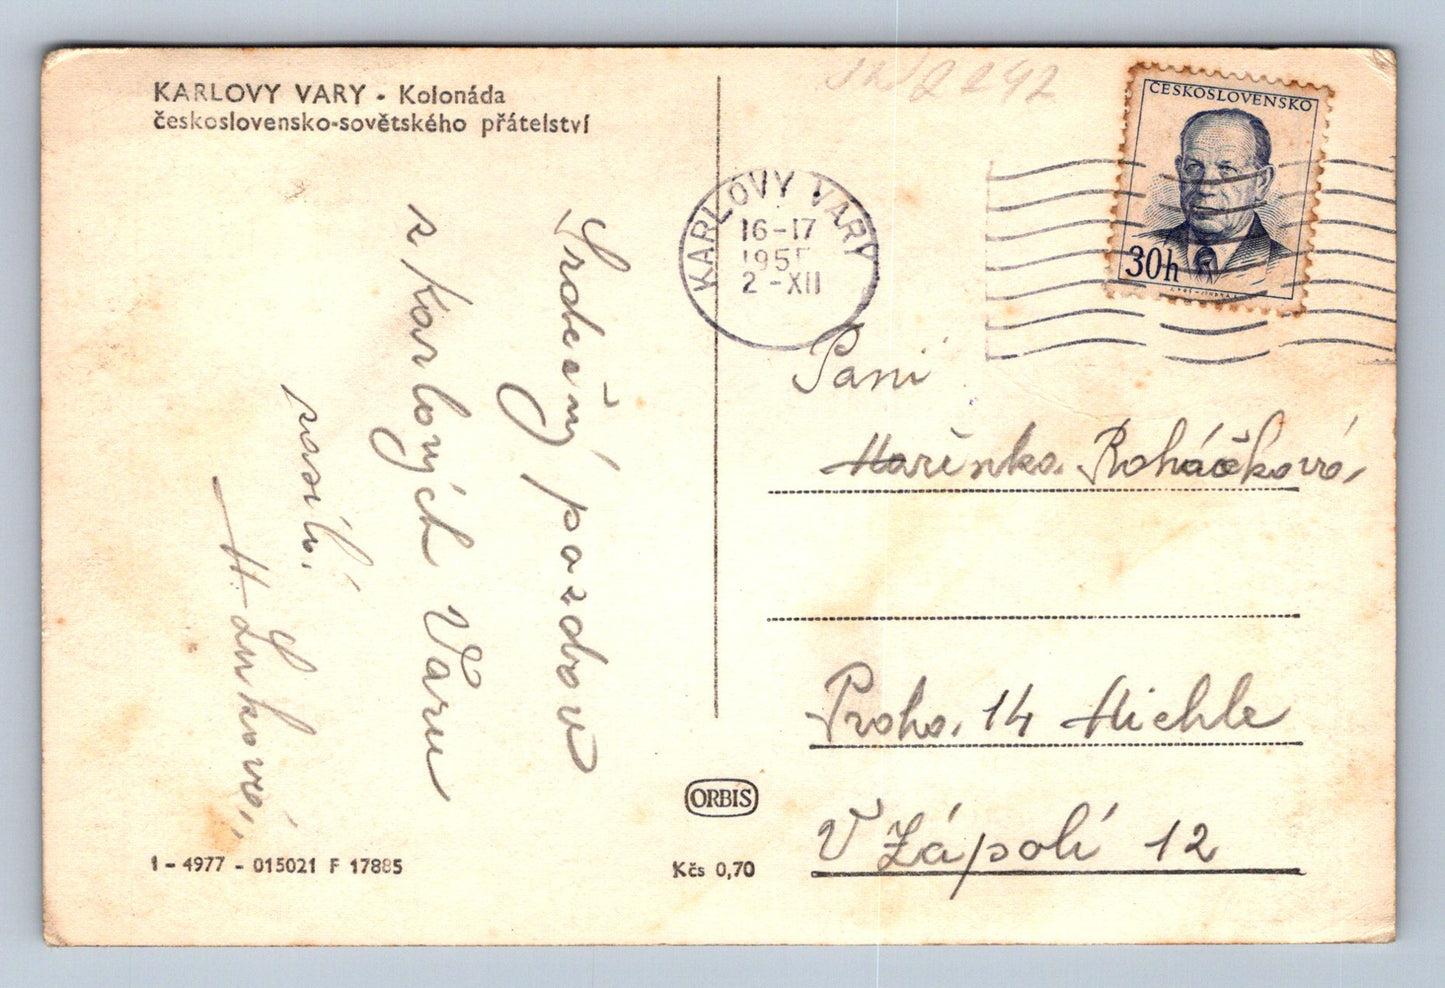 KARLOVY VARY - Kolonáda
československo-sovětského přátelství
Srdečný pozdrav
z Karlových Varů
zasílá
M. Linková,
KARLOVY VARY
16-17
1955
2-XII
ČESKOSLOVENSKO
30h
Paní
Mařenka Roháčková,
Praha 14 Michle
V Zápolí 12
ORBIS
1 - 4977 - 015021 F 17885
Kčs 0,70